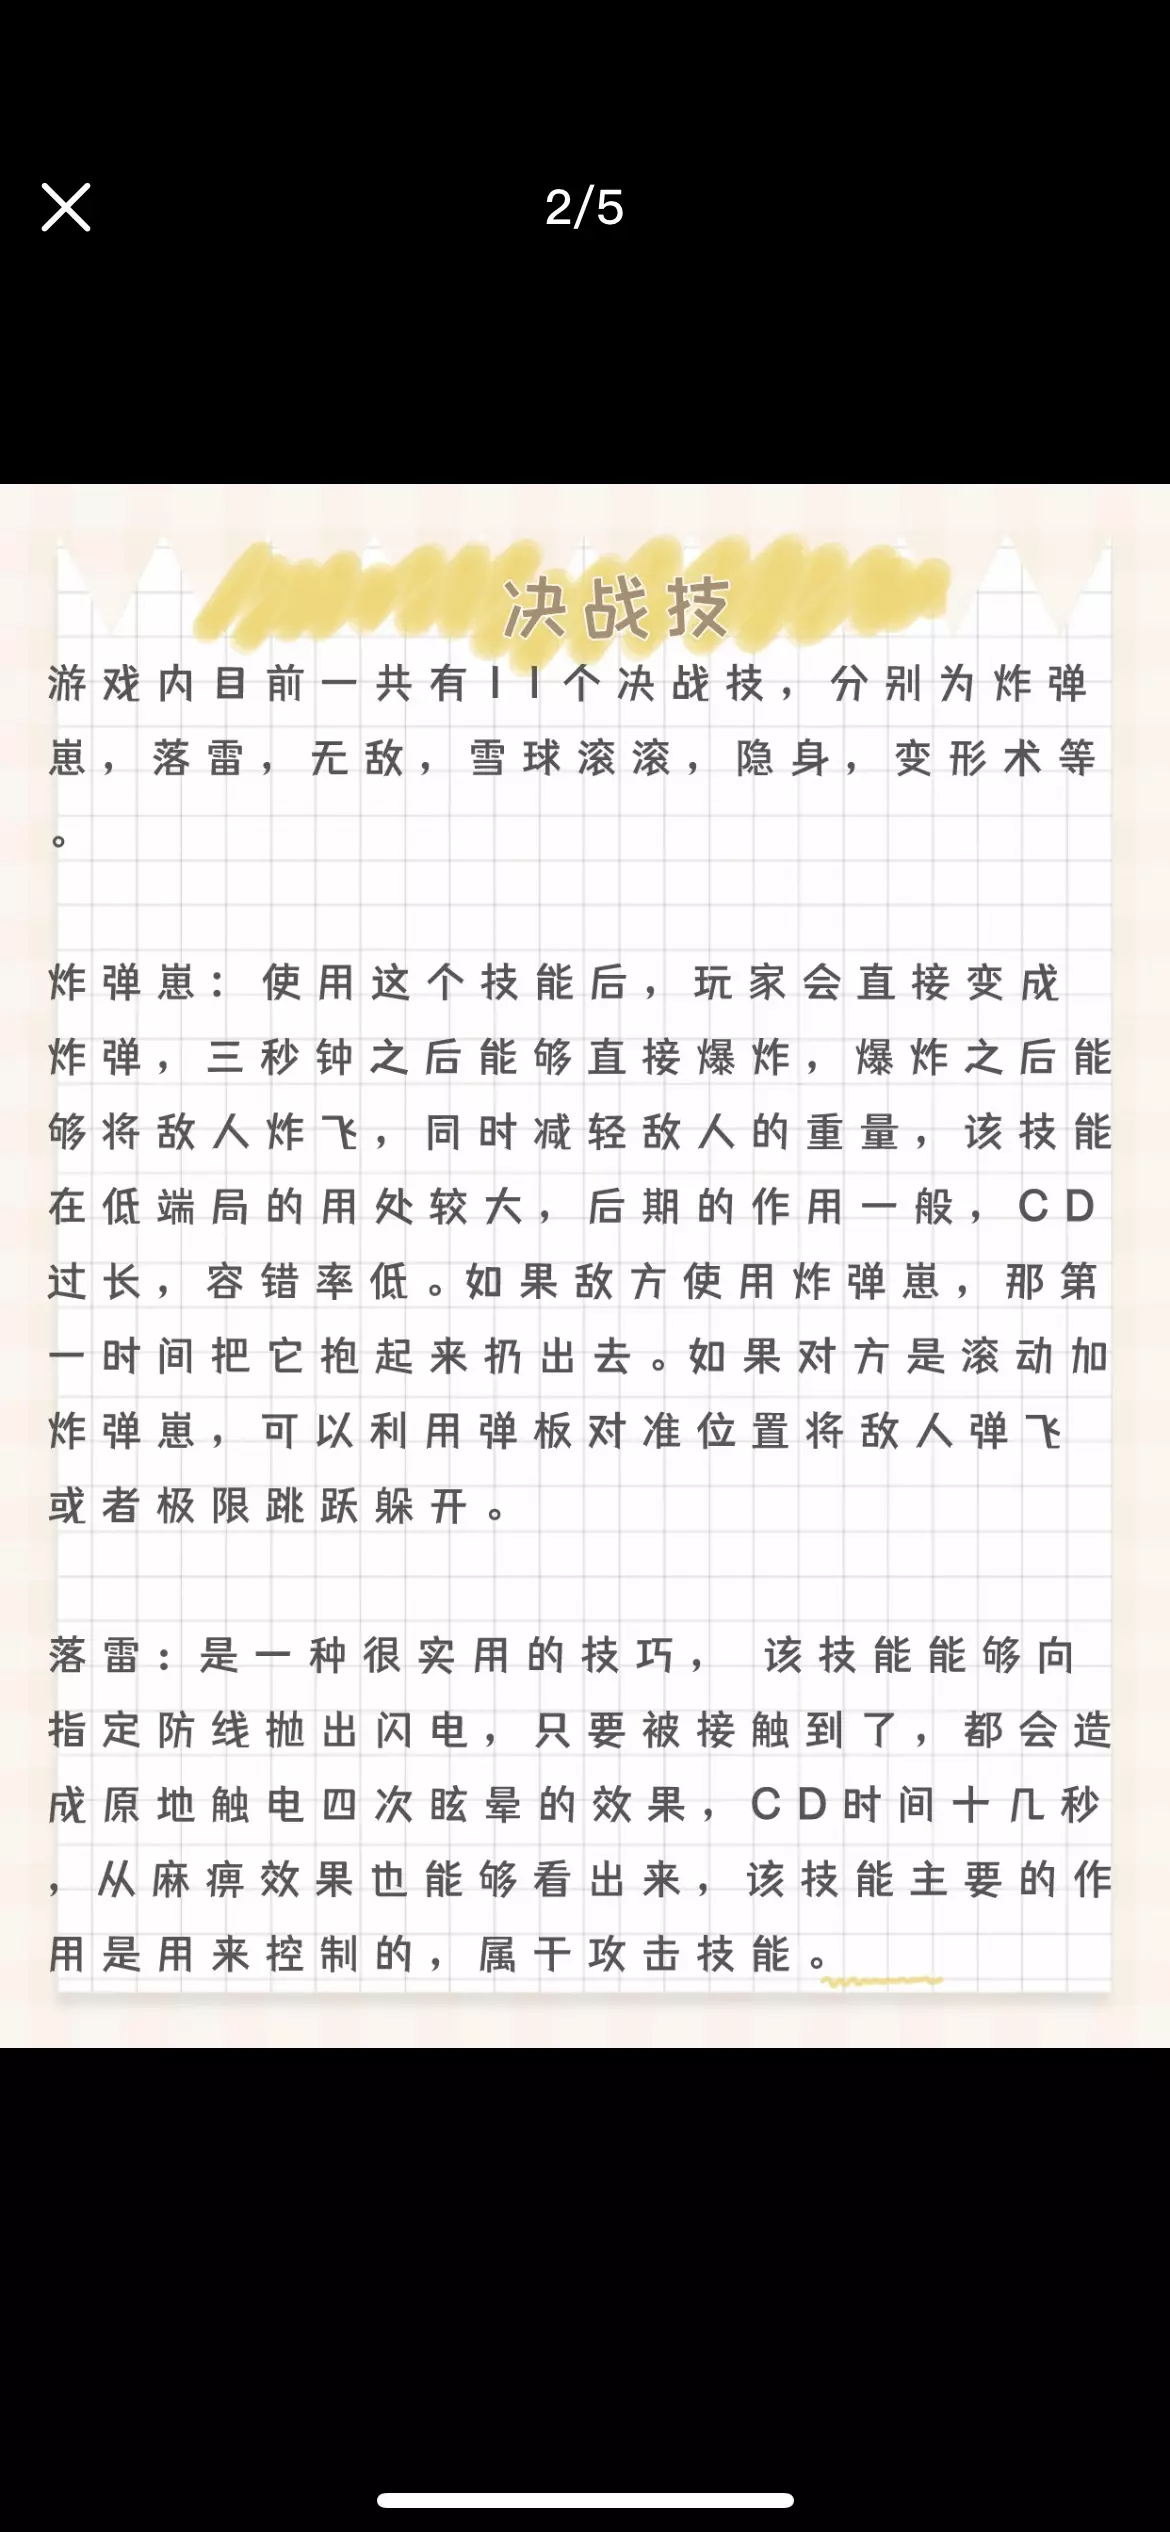 2/5
决战技
游戏内目前一共有11个决战技，分别为炸弹
崽，落雷，无敌，雪球滚滚，隐身，变形术等
。
炸弹崽：使用这个技能后，玩家会直接变成
炸弹，三秒钟之后能够直接爆炸，爆炸之后能
够将敌人炸飞，同时减轻敌人的重量，该技能
在低端局的用处较大，后期的作用一般，CD
过长，容错率低。如果敌方使用炸弹崽，那第
一时间把它抱起来扔出去。如果对方是滚动加
炸弹崽，可以利用弹板对准位置将敌人弹飞
或者极限跳跃躲开。
落雷：是一种很实用的技巧， 该技能能够向
指定防线抛出闪电，只要被接触到了，都会造
成原地触电四次眩晕的效果，CD时间十几秒
，从麻痹效果也能够看出来，该技能主要的作
用是用来控制的，属于攻击技能。